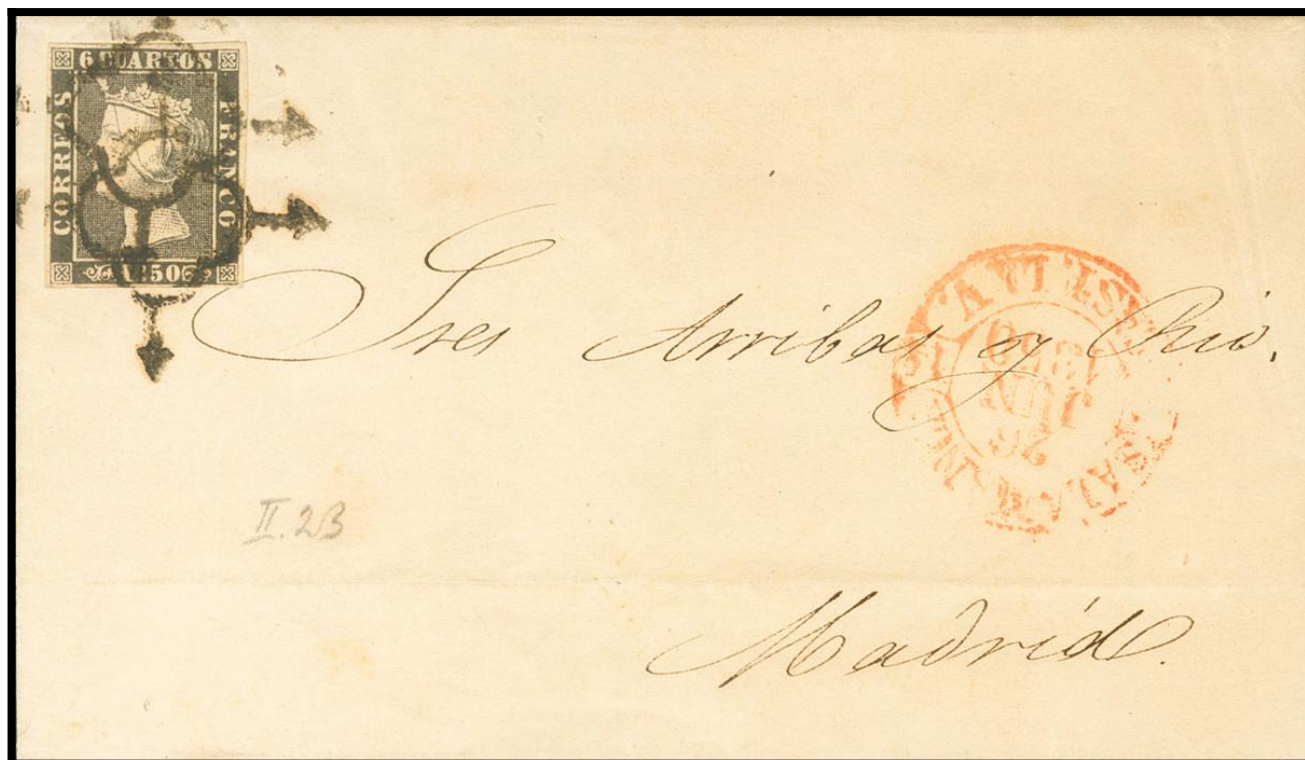 6 CUARTOS
CORREOS
FRANCO
1850
Sres Arribas y
SALAMANCA
CASTILLA V.
26
JUN
1850
II. 2B
Madrid.